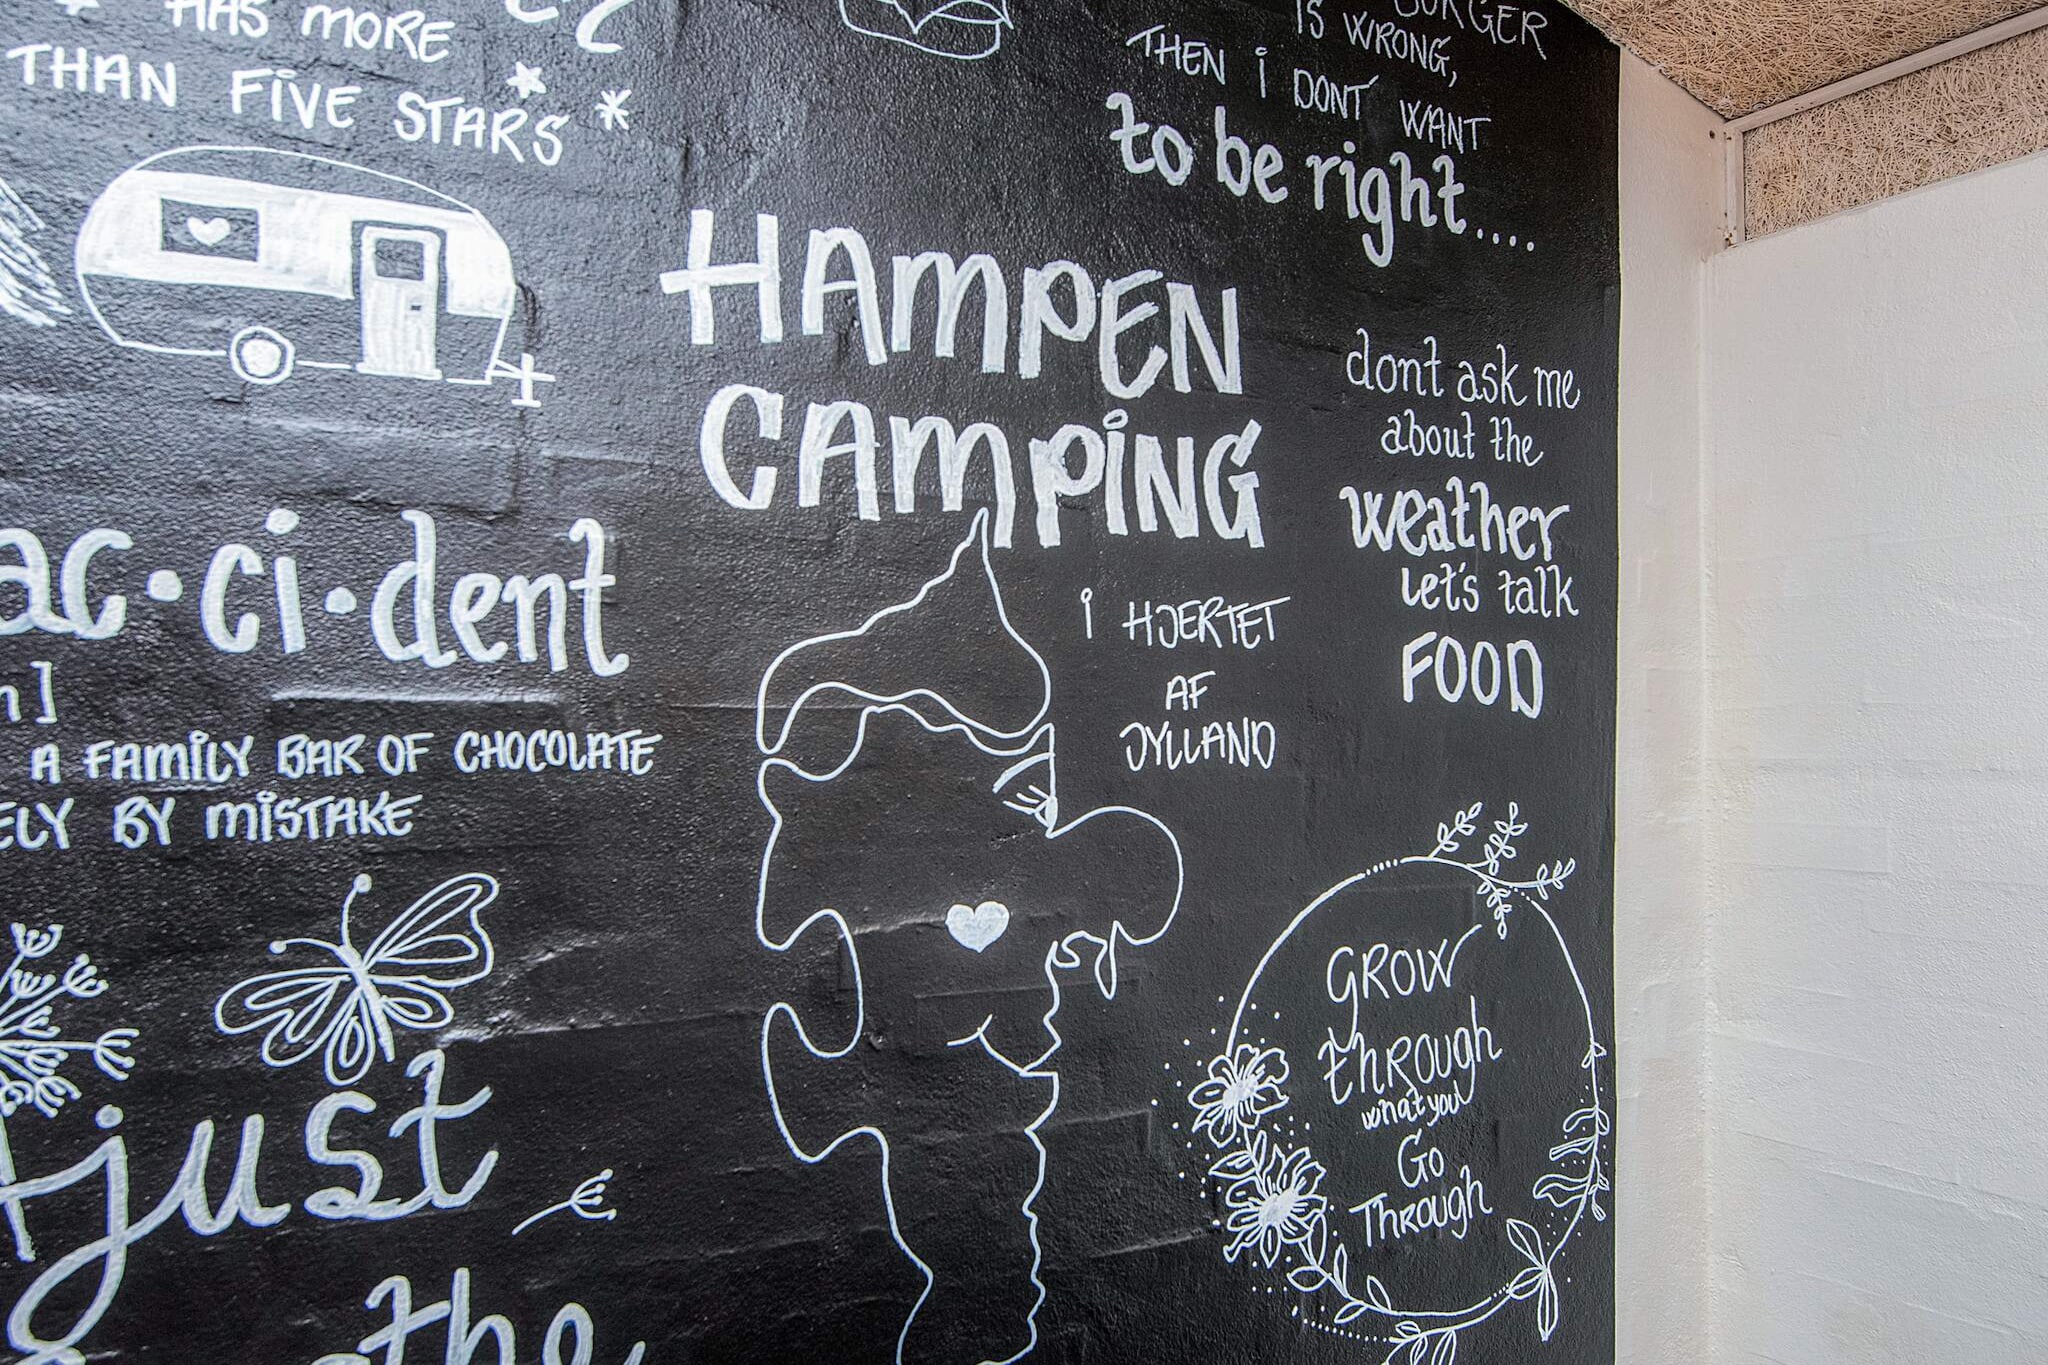 HAS MORE
THAN FIVE STARS
BURGER
IS WRONG,
THEN i DONT WANT
to be right....
HAMPEN
CAMPING
dont ask me
about the
weather
Let's talk
FOOD
i HJERTET
AF
JYLLAND
ac·ci·dent
A FAMILY BAR OF CHOCOLATE
BY MISTAKE
just
the
GROW
THROUGH
what you
Go
THROUGH